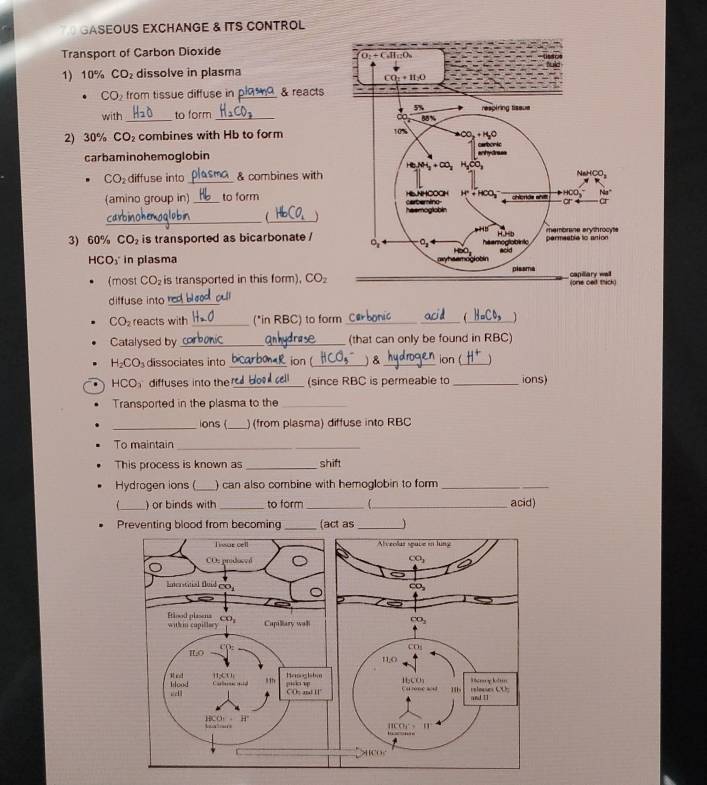 7.0 GASEOUS EXCHANGE & ITS CONTROL
Transport of Carbon Dioxide
1) 10% CO₂ dissolve in plasma
• CO₂ from tissue diffuse in plasma & reacts
with H₂O to form H₂CO₃
2) 30% CO₂ combines with Hb to form
carbaminohemoglobin
• CO₂ diffuse into plasma & combines with
(amino group in) Hb to form
carbinohemoglobin ( HbCO₂ )
3) 60% CO₂ is transported as bicarbonate /
HCO₃⁻ in plasma
• (most CO₂ is transported in this form), CO₂
diffuse into red blood cell
• CO₂ reacts with H₂O (*in RBC) to form Carbonic acid ( H₂CO₃ )
• Catalysed by carbonic anhydrase (that can only be found in RBC)
• H₂CO₃ dissociates into bicarbonate ion ( HCO₃⁻ ) & hydrogen ion ( H⁺ )
• HCO₃⁻ diffuses into the red blood cell (since RBC is permeable to ______ ions)
• Transported in the plasma to the ______
• ______ ions (___) (from plasma) diffuse into RBC
• To maintain ______ ______
• This process is known as ______ shift
• Hydrogen ions (___) can also combine with hemoglobin to form ______
(___) or binds with ______ to form ______ (______ acid)
• Preventing blood from becoming ____ (act as ______)
O₂ + C₆H₁₂O₆
tissue
fluid
CO₂ + H₂O
5%
respiring tissue
CO₂
85%
10%
CO₂ + H₂O
carbonic
anhydrase
Hb.NH₂ + CO₂
H₂CO₃
NaHCO₃
Hb.NHCOOH
H⁺ + HCO₃⁻
chloride shift
HCO₃⁻
Na⁺
carbamino-
haemoglobin
Cl⁻
Cl⁻
Hb
H.Hb
haemoglobinic
acid
membrane erythrocyte
permeable to anion
O₂
O₂
HbO₂
oxyhaemoglobin
plasma
capillary wall
(one cell thick)
Tissue cell
CO₂ produced
Interstitial fluid
CO₂
Blood plasma
within capillary
CO₂
Capillary wall
CO₂
H₂O
Red
blood
cell
H₂CO₃
Carbonic acid
Hb
Hemoglobin
picks up
CO₂ and H⁺
HCO₃⁻ + H⁺
Bicarbonate
HCO₃⁻
Alveolar space in lung
CO₂
CO₂
CO₂
CO₂
H₂O
H₂CO₃
Carbonic acid
Hb
Hemoglobin
releases CO₂
and H⁺
HCO₃⁻ + H⁺
Bicarbonate